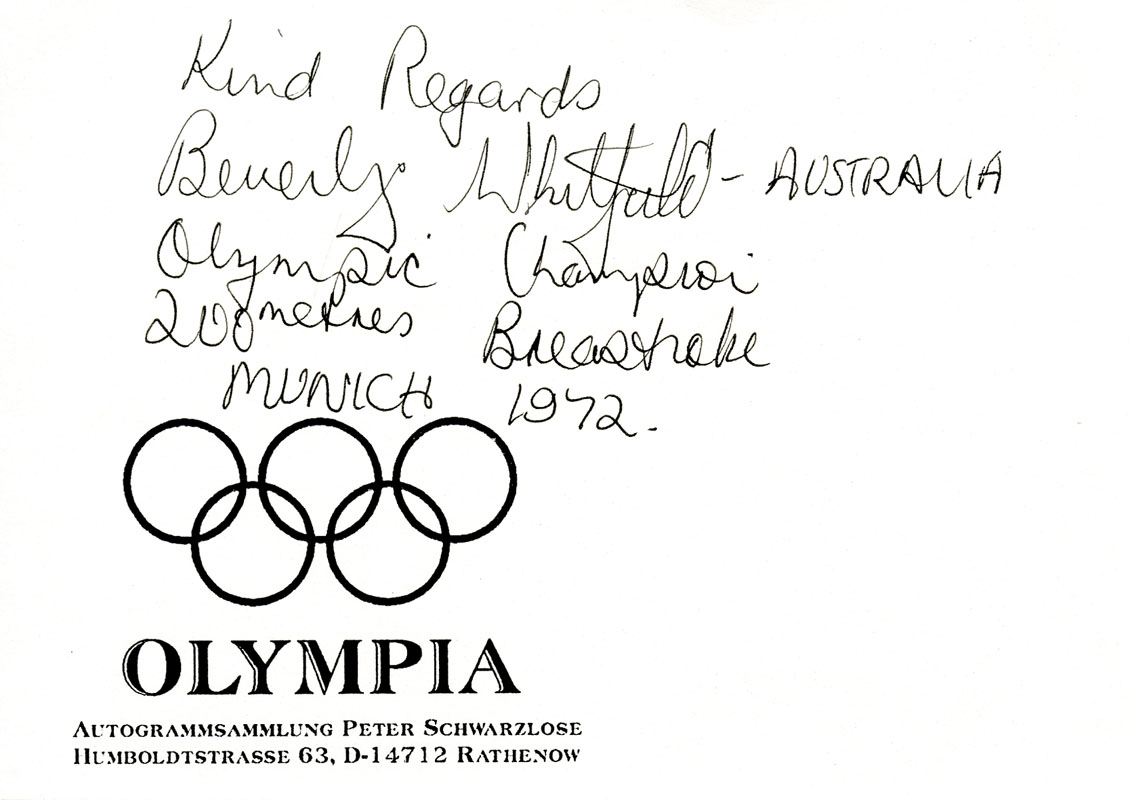 Kind Regards
Beverly Whitfield - AUSTRALIA
Olympic Champion
200 metres Breastroke
MUNICH 1972.
OLYMPIA
AUTOGRAMMSAMMLUNG PETER SCHWARZLOSE
HUMBOLDTSTRASSE 63, D-14712 RATHENOW